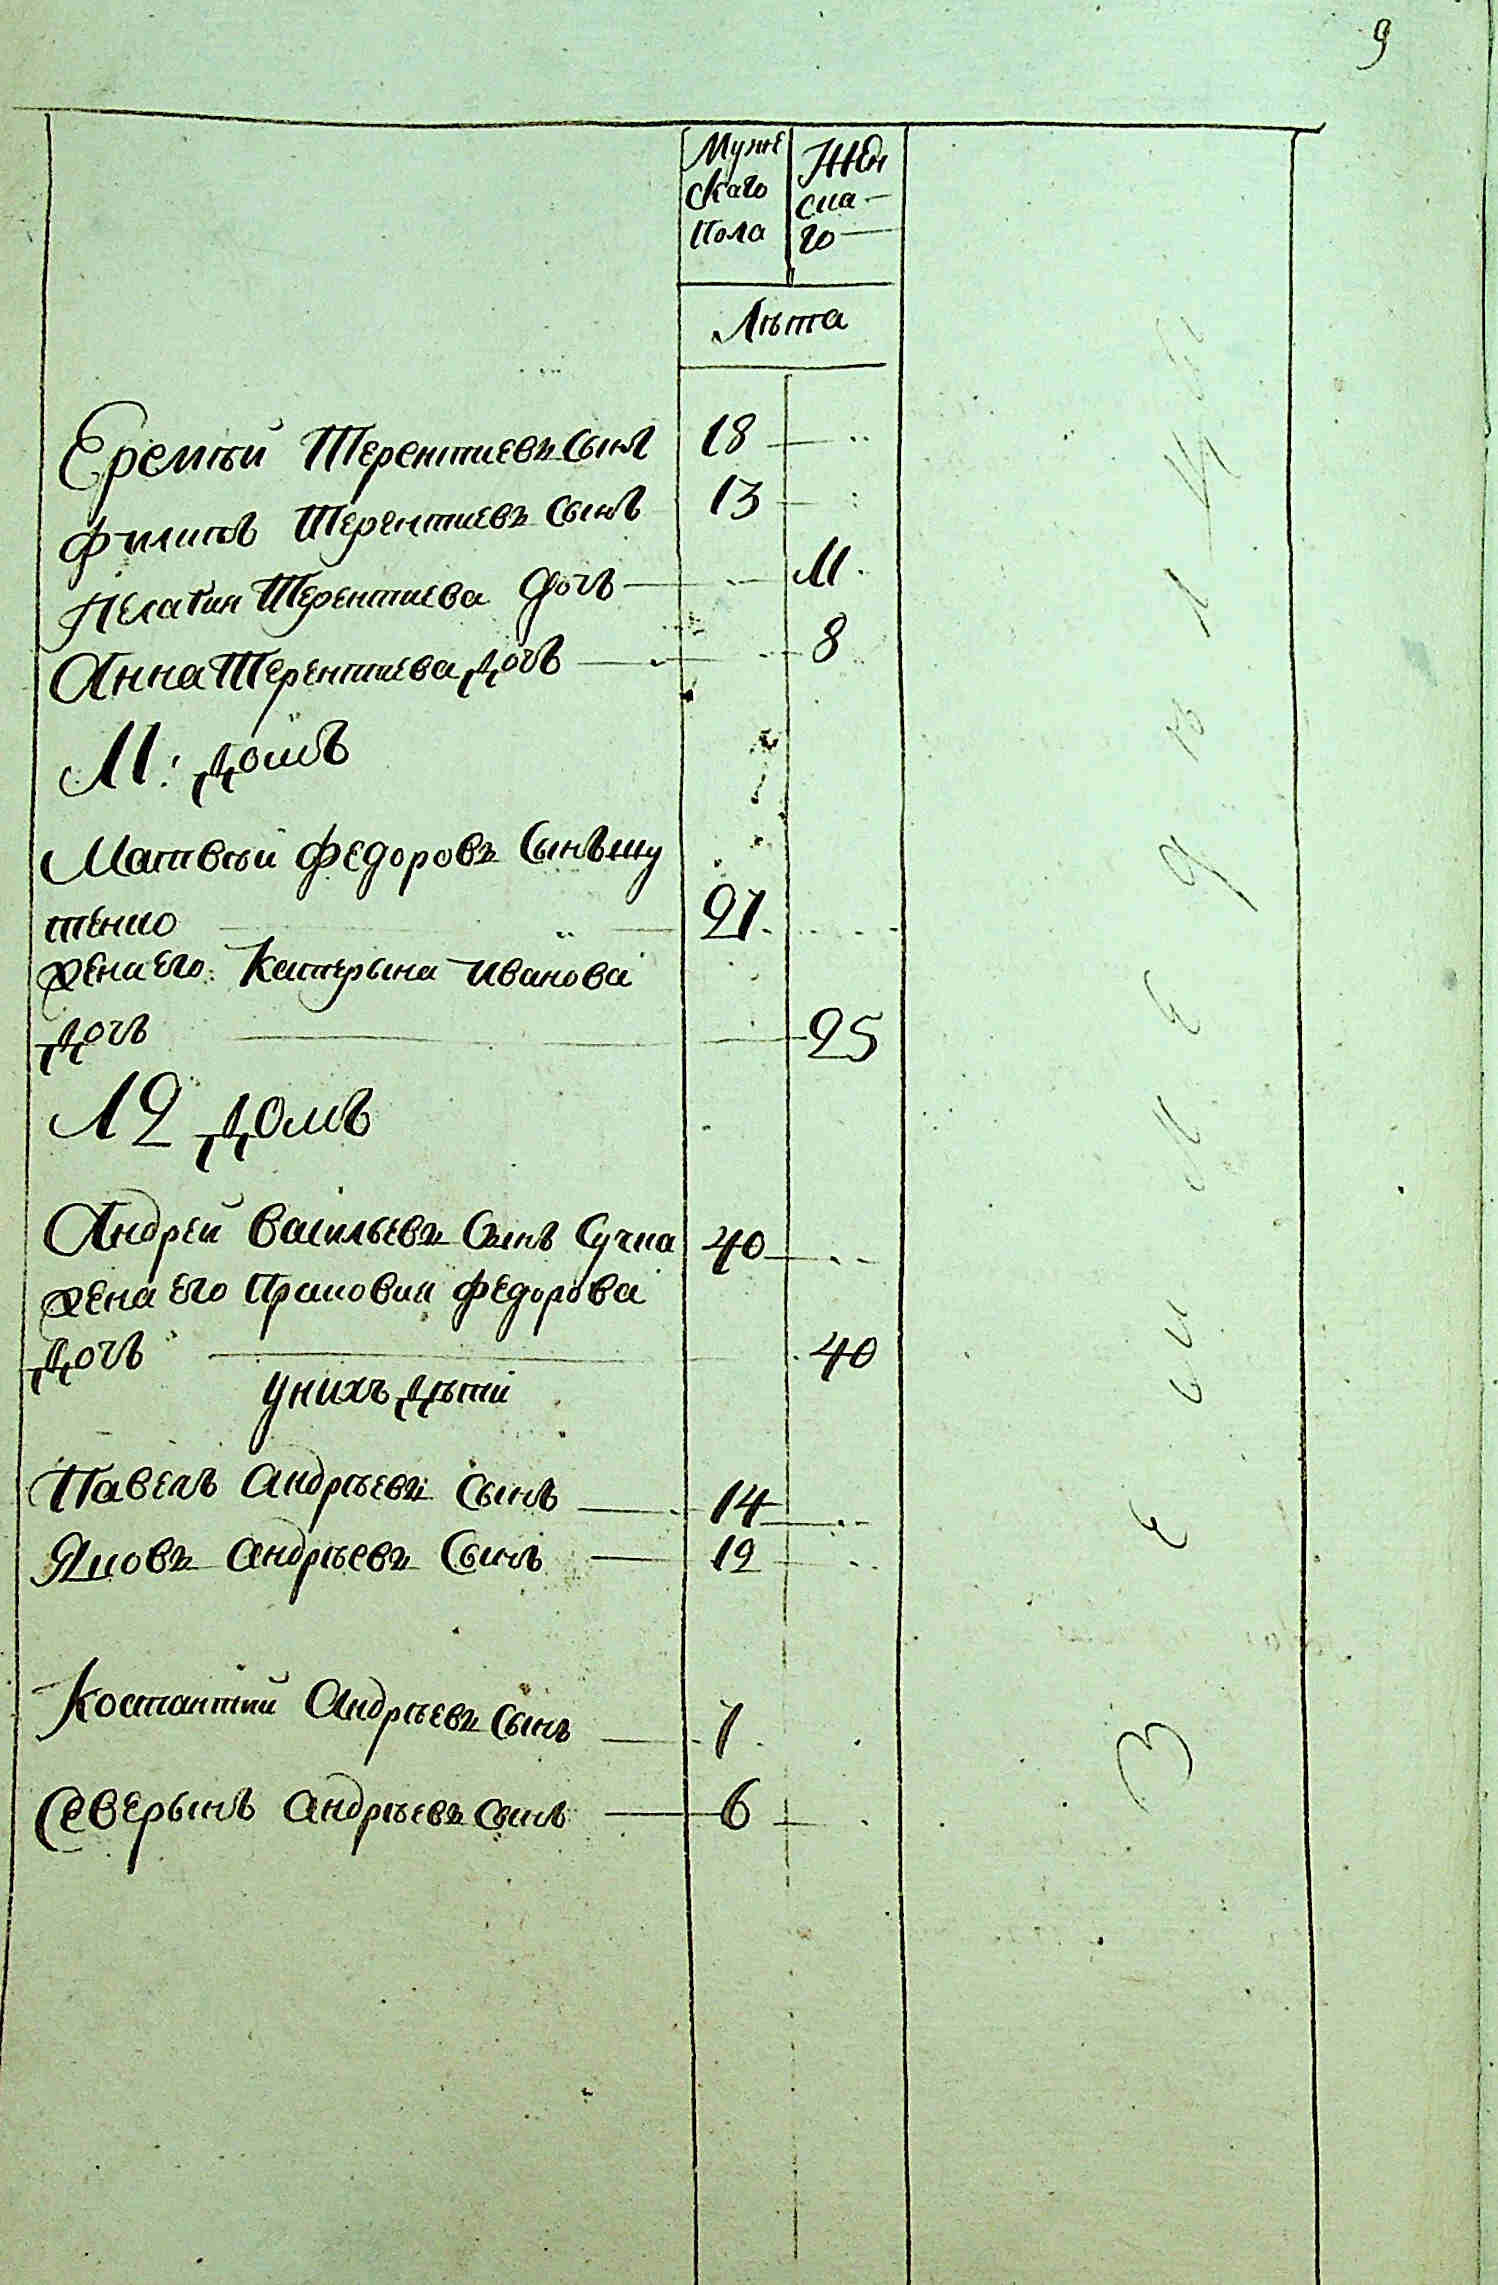 9
Муже Жен
скаго ска-
пола го
Лѣта
Еремѣй Терентиевъ сынъ 18
Филипъ Терентиевъ сынъ 13
Пелагия Терентиева дочь 11
Анна Терентиева дочь 8
11: домъ
Матвѣй Федоровъ сынъ шу
тенко 27
жена его Катерына Иванова
дочь 25
12 домъ
Андрей Васильевъ сынъ Сучка 40
жена его Прасковия Федорова
дочь 40
у нихъ дѣти
Павелъ Андрѣевъ сынъ 14
Яковъ Андрѣевъ сынъ 12
Костантий Андрѣевъ сынъ 7
Северынъ Андрѣевъ сынъ 6